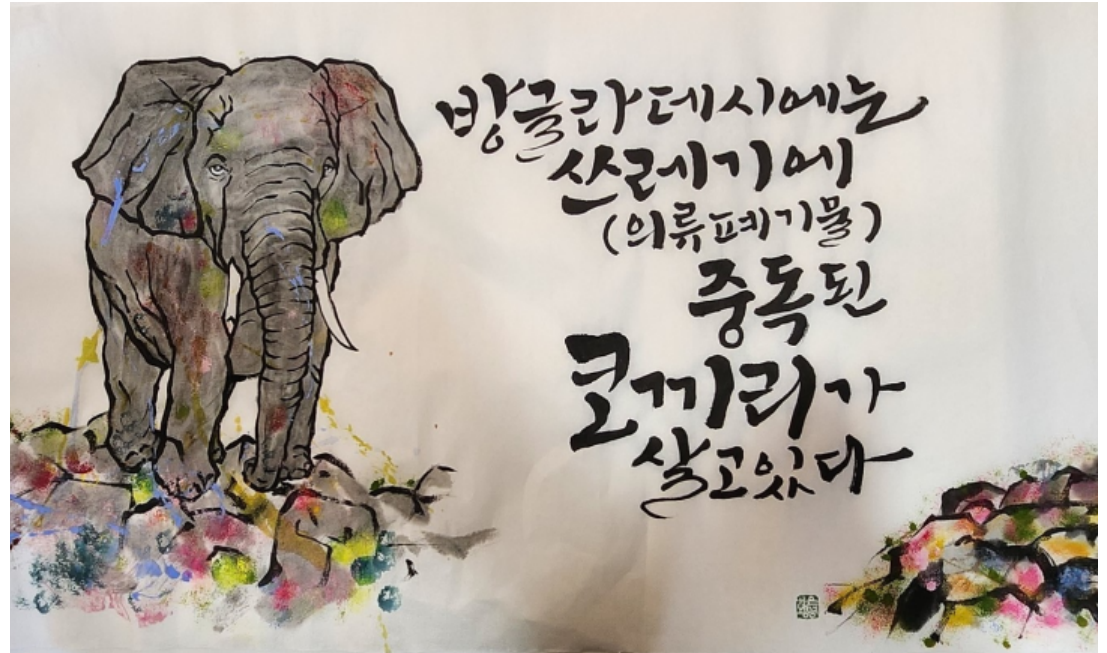 방글라데시에는
쓰레기에
(의류폐기물)
중독된
코끼리가
살고있다